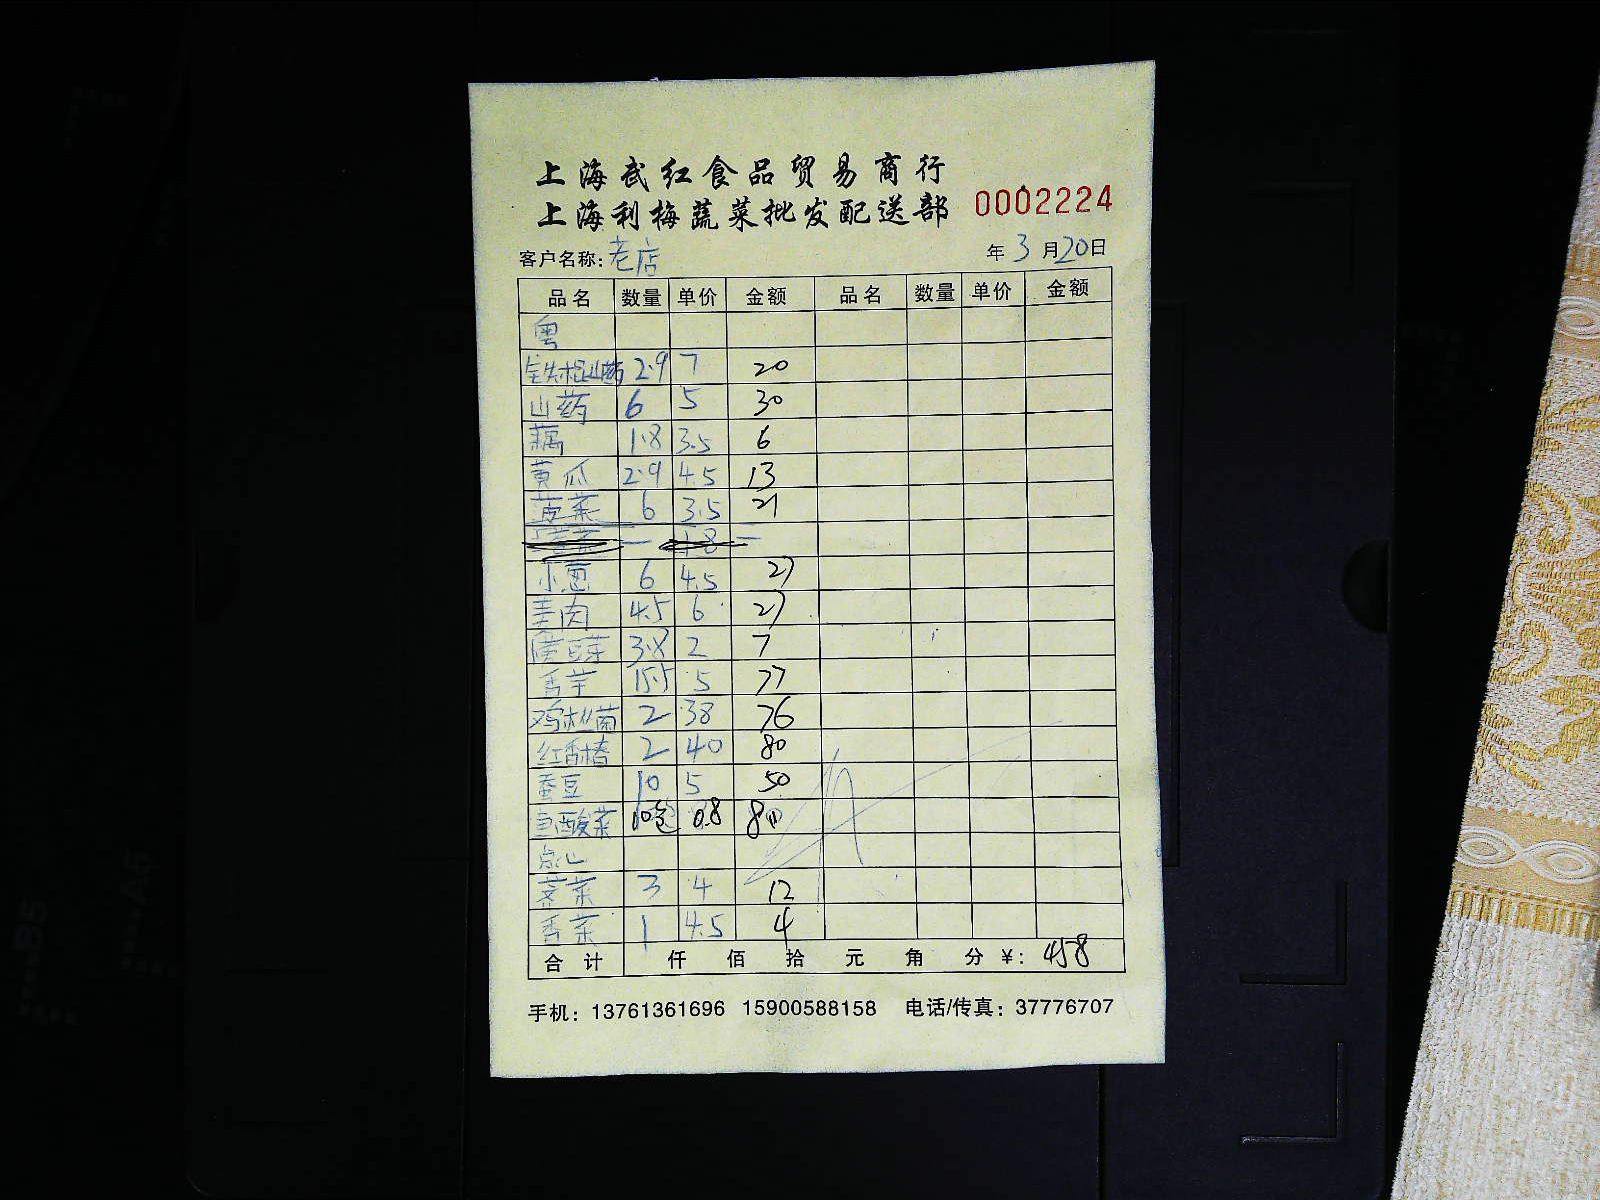 上海武红食品贸易商行
上海利梅蔬菜批发配送部 0002224
客户名称:老店 年3月20日
品名 数量 单价 金额 品名 数量 单价 金额
粤
铁棍山药 2.9 7 20
山药 6 5 30
藕 1.8 3.5 6
黄瓜 2.9 4.5 13
菠菜 6 3.5 21
1.8
小葱 6 4.5 27
肉 4.5 6 27
黄豆芽 3.8 2 7
香芋 15.5 5 77
鸡枞菌 2 38 76
红香椿 2 40 80
蚕豆 10 5 50
鱼酸菜 10包 0.8 8
点心
荠菜 3 4 12
香菜 1 4.5 4
合计 仟 佰 拾 元 角 分 ¥: 458
手机：13761361696 15900588158 电话/传真：37776707